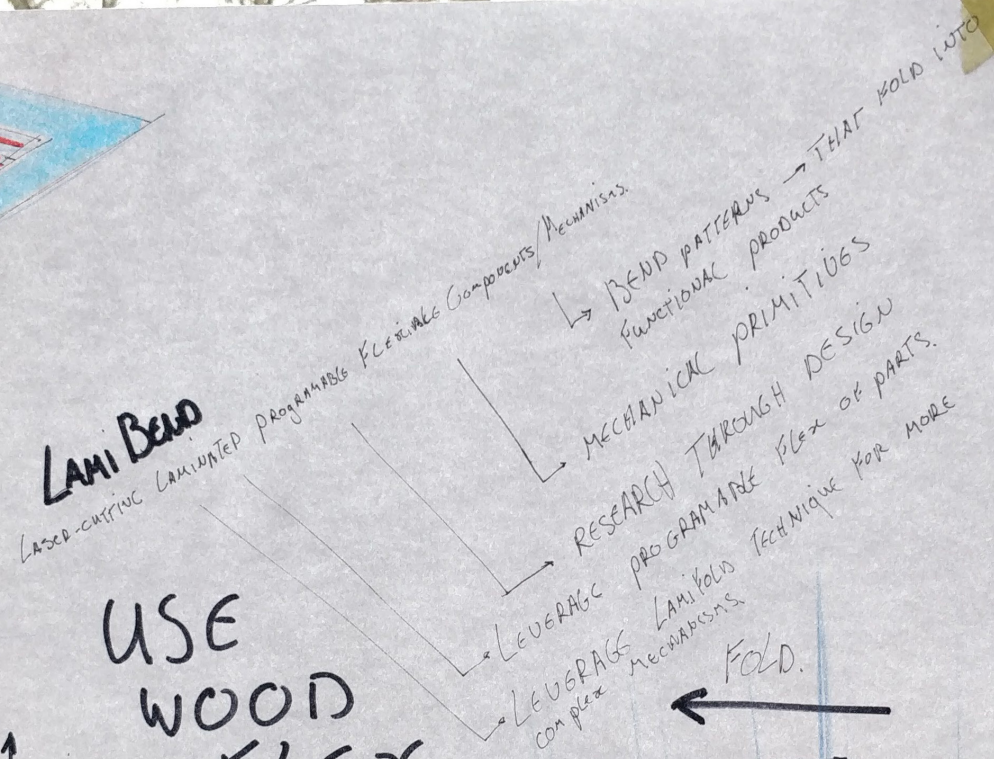 LAMIBEND
LASER-CUTTING LAMINATED PROGRAMABLE FLEXIABLE COMPONENTS/MECHANISMS.
BEND PATTERNS → THAT FOLD INTO
FUNCTIONAL PRODUCTS
MECHANICAL PRIMITIVES
RESEARCH THROUGH DESIGN
LEVERAGE PROGRAMABLE FLEX OF PARTS.
LEVERAGE LAMIFOLD TECHNIQUE FOR MORE
COMPLEX MECHANISMS.
FOLD.
USE
WOOD
FLEX